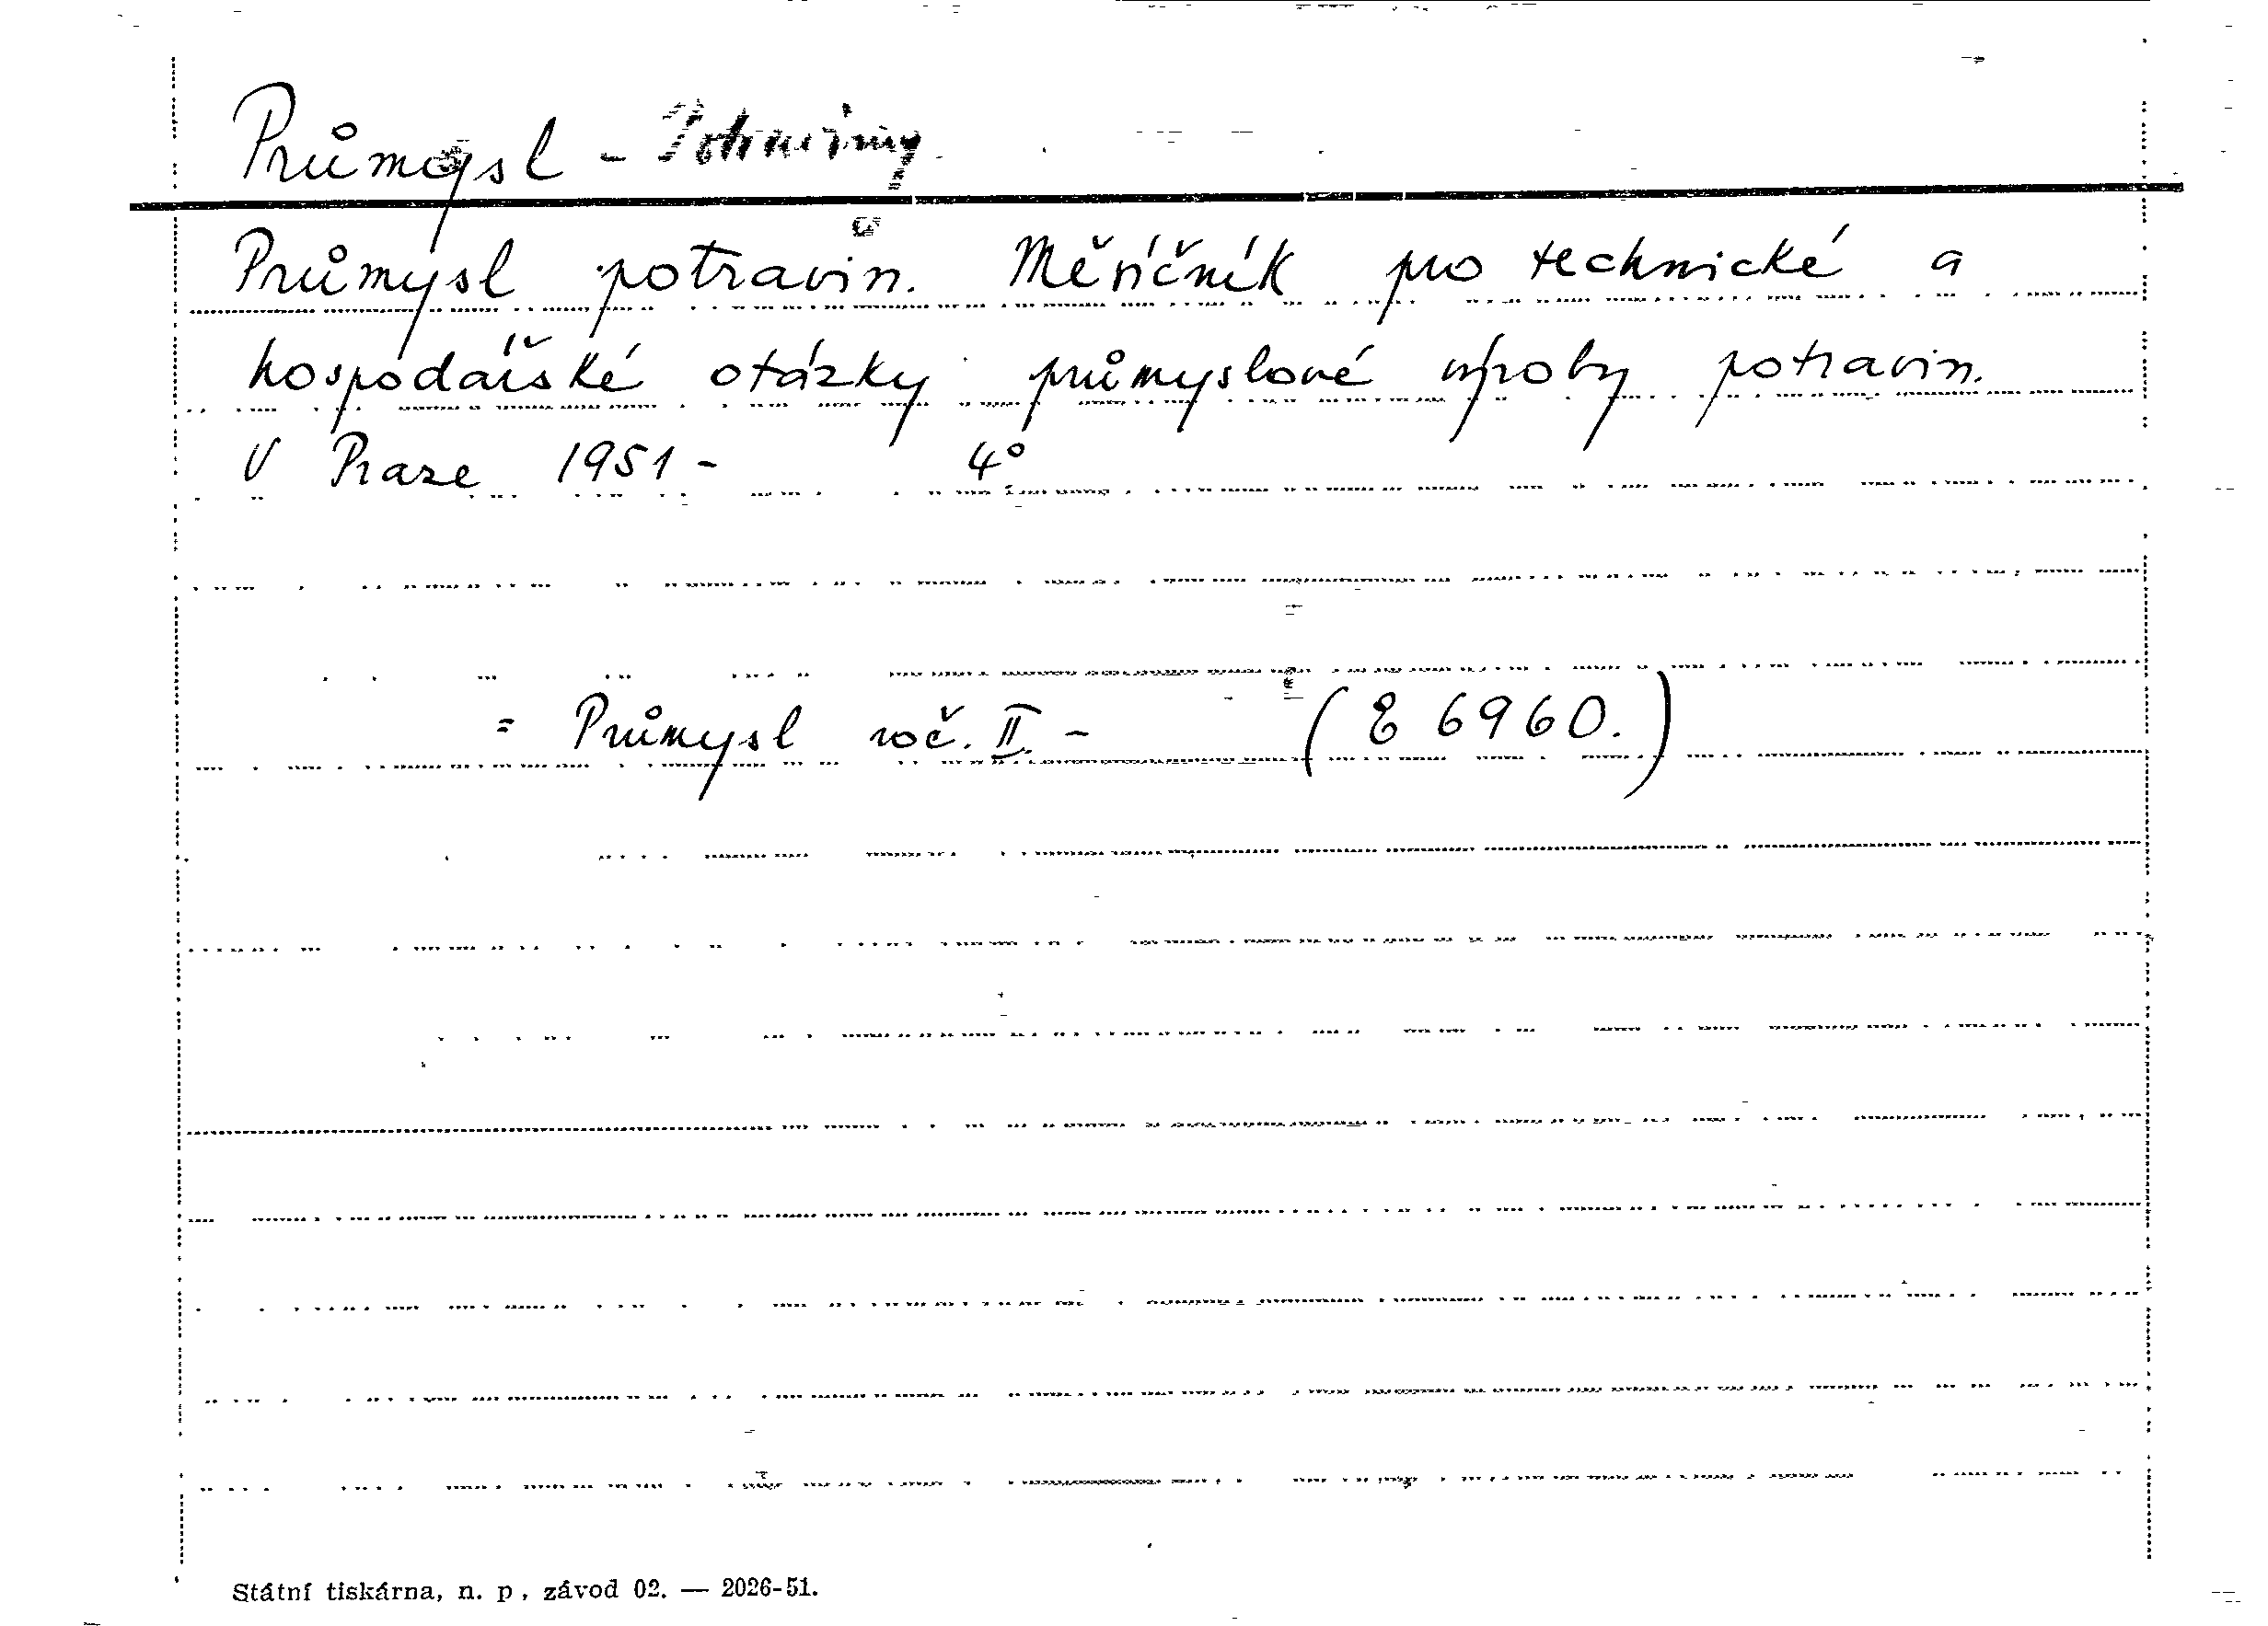 Průmysl - Potraviny
Průmysl potravin. Měsíčník pro technické a
hospodářské otázky průmyslové výroby potravin.
V Praze 1951 - 4°
= Průmysl roč. II. - (E 6960.)
Státní tiskárna, n. p., závod 02. — 2026-51.